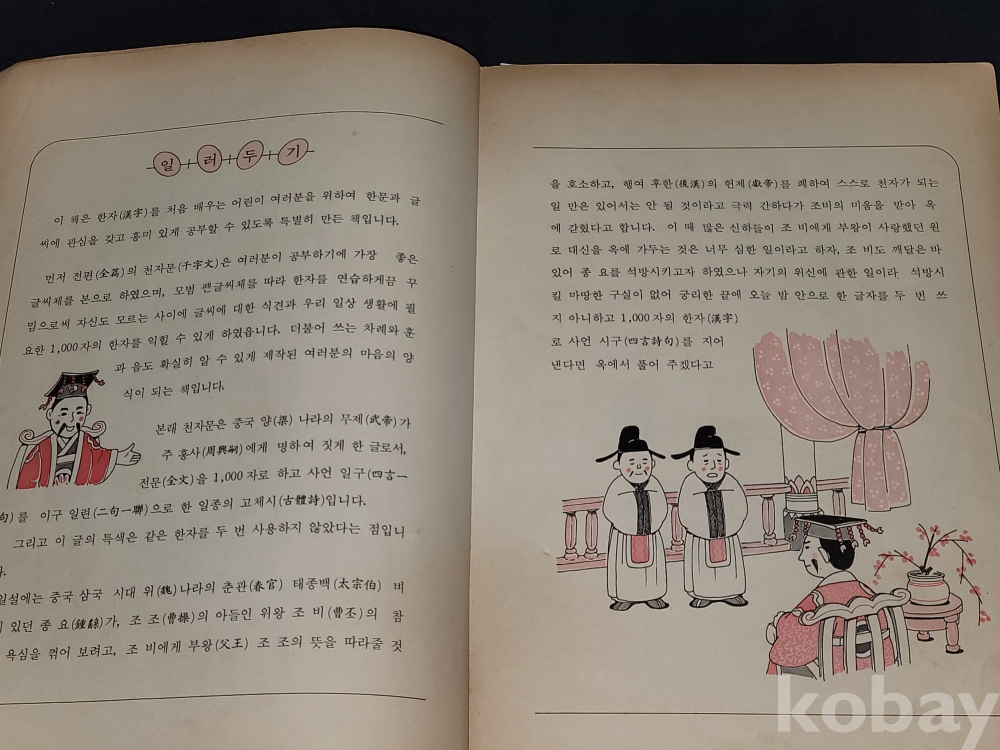 일러두기
이 책은 한자(漢字)를 처음 배우는 어린이 여러분을 위하여 한문과 글
씨에 관심을 갖고 흥미 있게 공부할 수 있도록 특별히 만든 책입니다.
먼저 전편(全篇)의 천자문(千字文)은 여러분이 공부하기에 가장 좋은
글씨체를 본으로 하였으며, 모범 펜글씨체를 따라 한자를 연습하게끔 꾸
밈으로써 자신도 모르는 사이에 글씨에 대한 식견과 우리 일상 생활에 필
요한 1,000자의 한자를 익힐 수 있게 하였읍니다. 더불어 쓰는 차례와 훈
과 음도 확실히 알 수 있게 제작된 여러분의 마음의 양
식이 되는 책입니다.
본래 천자문은 중국 양(梁) 나라의 무제(武帝)가
주 흥사(周興嗣)에게 명하여 짓게 한 글로서,
전문(全文)을 1,000자로 하고 사언 일구(四言一
句)를 이구 일련(二句一聯)으로 한 일종의 고체시(古體詩)입니다.
그리고 이 글의 특색은 같은 한자를 두 번 사용하지 않았다는 점입니
다.
일설에는 중국 삼국 시대 위(魏)나라의 춘관(春官) 태종백(太宗伯) 벼
있던 종 요(鍾繇)가, 조 조(曹操)의 아들인 위왕 조 비(曹丕)의 참
욕심을 꺾어 보려고, 조 비에게 부왕(父王) 조 조의 뜻을 따라줄 것
을 호소하고, 행여 후한(後漢)의 헌제(獻帝)를 폐하여 스스로 천자가 되는
일 만은 있어서는 안 될 것이라고 극력 간하다가 조비의 미움을 받아 옥
에 갇혔다고 합니다. 이 때 많은 신하들이 조 비에게 부왕이 사랑했던 원
로 대신을 옥에 가두는 것은 너무 심한 일이라고 하자, 조 비도 깨달은 바
있어 종 요를 석방시키고자 하였으나 자기의 위신에 관한 일이라 석방시
킬 마땅한 구실이 없어 궁리한 끝에 오늘 밤 안으로 한 글자를 두 번 쓰
지 아니하고 1,000자의 한자(漢字)
로 사언 시구(四言詩句)를 지어
낸다면 옥에서 풀어 주겠다고
kobay